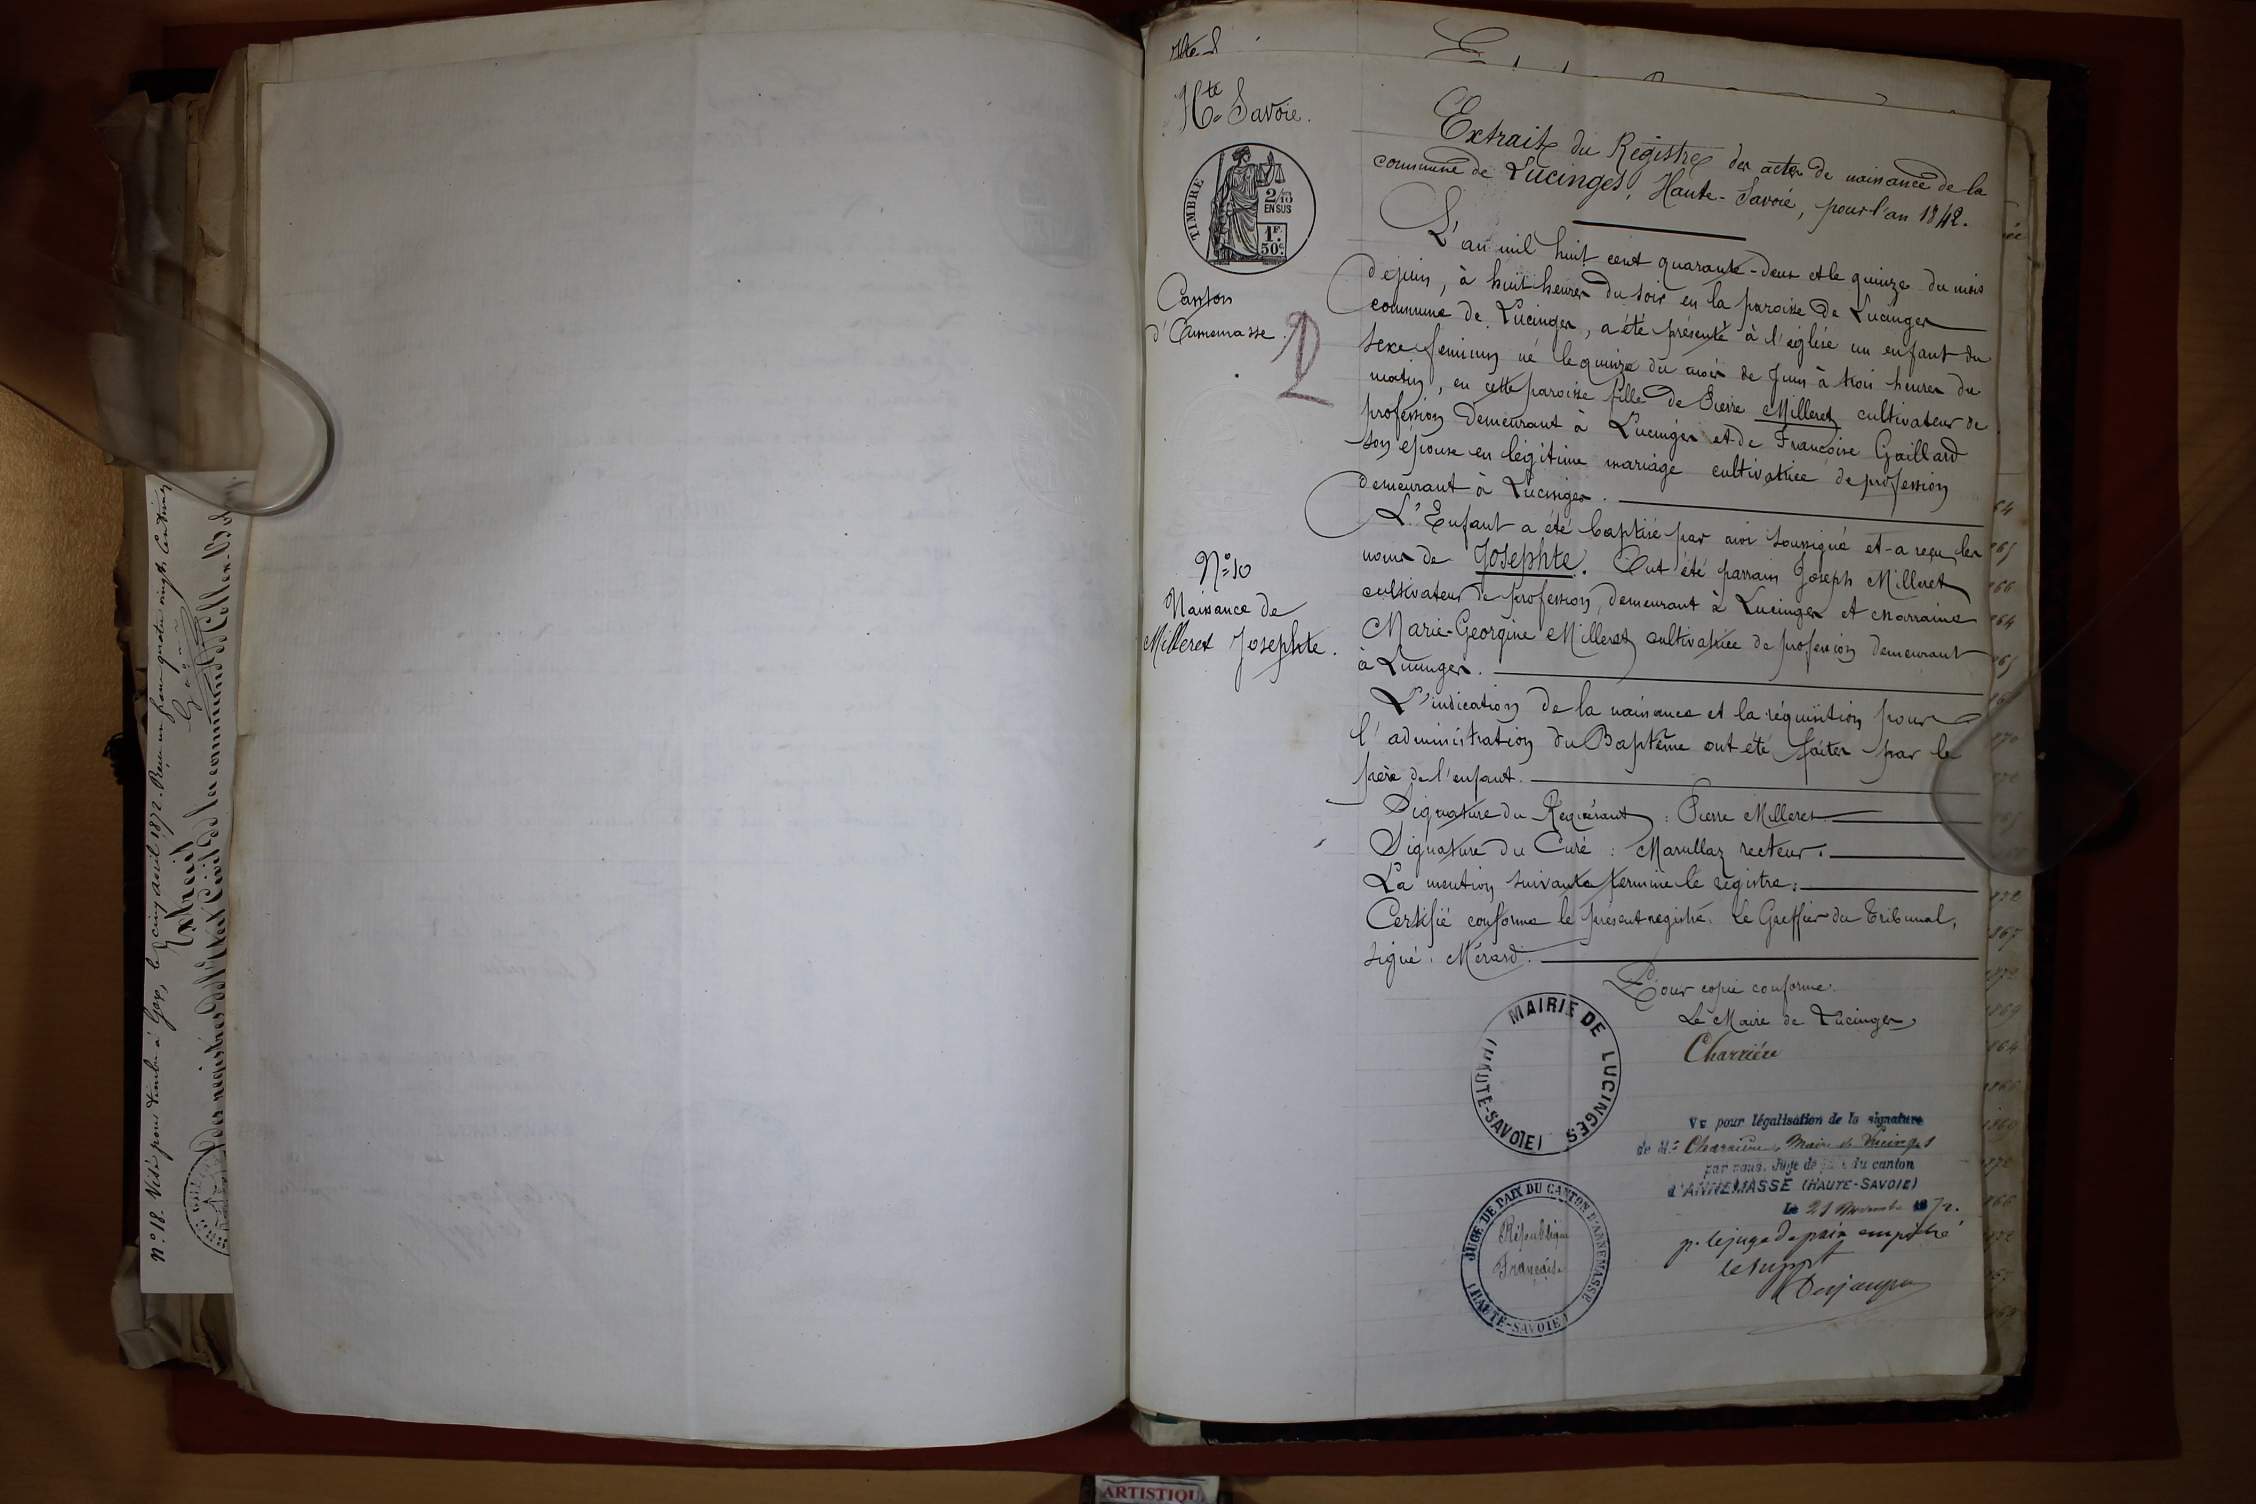 Hte Savoie.
TIMBRE
2/10
EN SUS
1F.
50c.
Canton
d'Annemasse.
N° 10
Naissance de
Milleret Josephte.
Extrait du Registre des actes de naissance de la
commune de Lucinges, Haute-Savoie, pour l'an 1842.
L'an mil huit cent quarante-deux et le quinze du mois
de juin, à huit heures du soir en la paroisse de Lucinges
commune de Lucinges, a été présenté à l'église un enfant du
sexe féminin né le quinze du mois de Juin à trois heures du
matin, en cette paroisse fille de Pierre Milleret cultivateur de
profession demeurant à Lucinges et de Françoise Gaillard
son épouse en légitime mariage cultivatrice de profession
demeurant à Lucinges.
L'Enfant a été baptisé par moi soussigné et a reçu les
noms de Josephte. Ont été parrain Joseph Milleret
cultivateur de profession, demeurant à Lucinges et marraine
Marie-Georgine Milleret cultivatrice de profession demeurant
à Lucinges.
L'indication de la naissance et la réquisition pour
l'administration du Baptême ont été faites par le
père de l'enfant.
Signature du Requérant : Pierre Milleret
Signature du Curé : Marullaz recteur.
La mention suivante termine le registre :
Certifié conforme le présent registre. Le Greffier du Tribunal,
signé : Mérard.
Pour copie conforme.
Le Maire de Lucinges,
Charrière
MAIRIE DE LUCINGES
(HAUTE-SAVOIE)
Vu pour légalisation de la signature
de Mr. Charrière, Maire de Lucinges
par nous, Juge de du canton
d'ANNEMASSE (HAUTE-SAVOIE)
Le 21 Novembre 1872.
p. le juge de paix empêché
le suppt
JUGE DE PAIX DU CANTON D'ANNEMASSE
(HAUTE-SAVOIE)
République
Française
N° 18. Visé pour timbre à Gex, le cinq avril 1872. Reçu un franc quatre vingts centimes
Extrait
des registres de l'Etat Civil de la commune de
ARTISTIQU